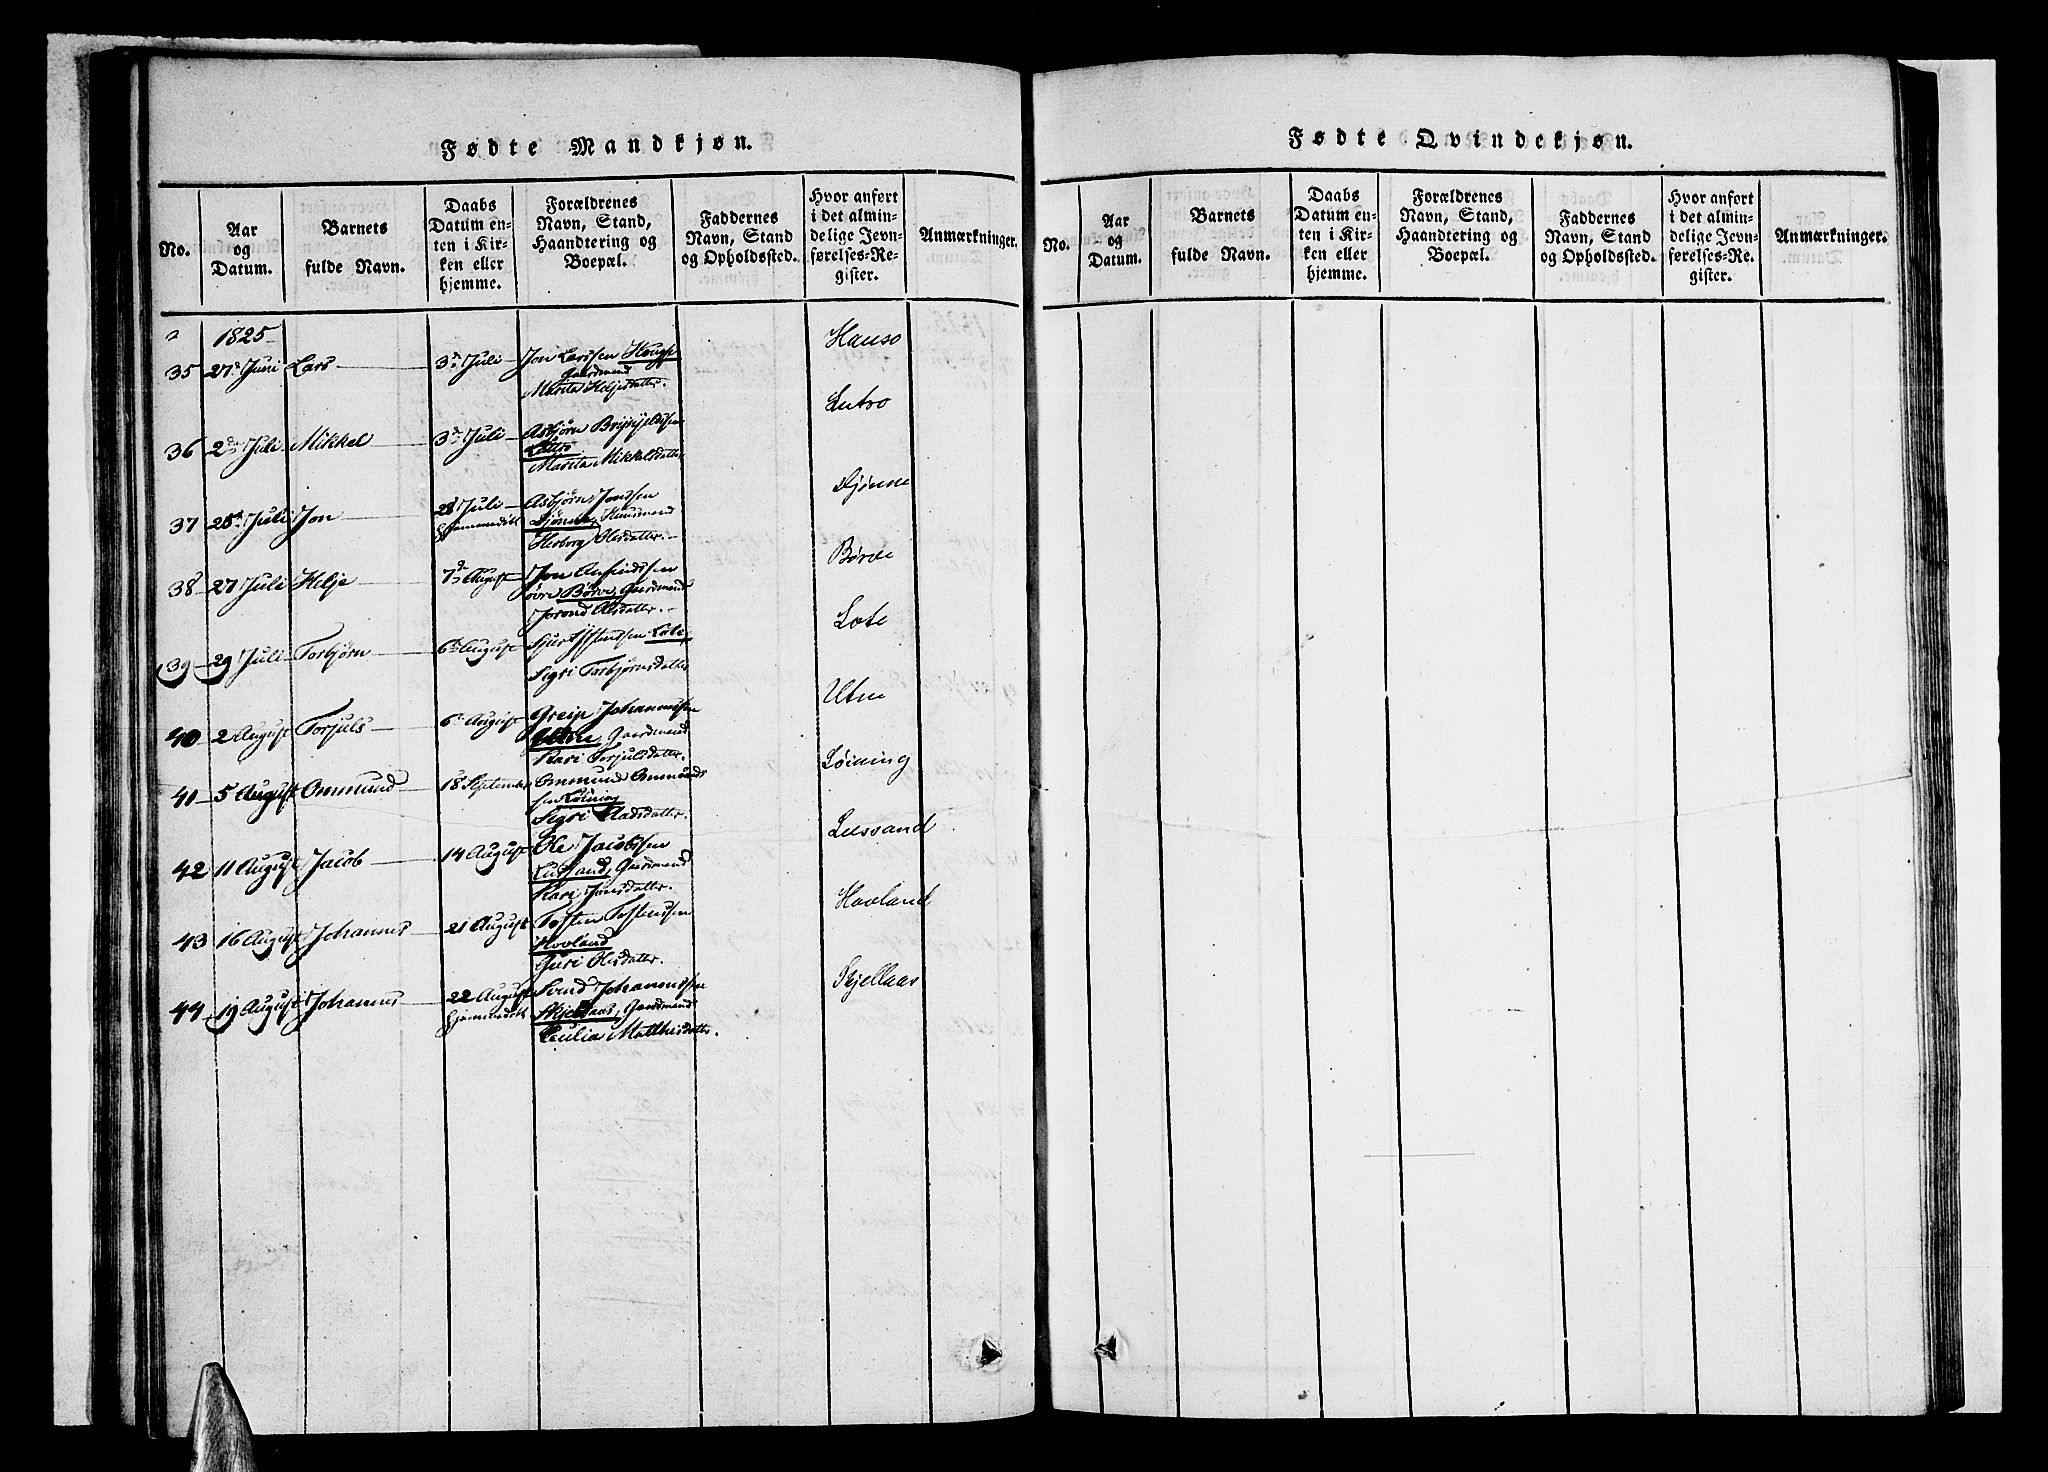 Fødte Mandkjøn.
No.
Aar
og
Datum.
Barnets
fulde Navn.
Daabs
Datum en-
ten i Kir-
ken eller
hjemme.
Forældrenes
Navn, Stand,
Haandtering og
Boepæl.
Faddernes
Navn, Stand
og Opholdssted.
Hvor anført
i det almin-
delige Jevn-
førelses-Re-
gister.
Anmærkninger.
1825
35 27 Juni Lars 3 Juli Jon Larssen Hauso
Gaardmand
Marita Heljesdatter.
36 2 Juli Mikkel 3 Juli Asbjørn Lutro
Marita Mikkelsdatter
37 25 Juli Jon 28 Juli Asbjørn Jonssen Djønne
Hjemmedøbt Djønne, Huusmand
Herborg Olesdatter.
38 27 Juli Helje 7 August Jon Anfindssen Børve
øvre Børve, Gaardmand
Jorond Olesdatter.
39 29 Juli Torbjørn 6 August Lote, Lote
Sigri Torbjørnsdatter
40 2 August Torjuls 6 August Greip Johannessen Utne
Utne, Gaardmand
Kari Torjulsdatter.
41 5 August Ommund 18 September Ommund Ommunds Løining
sen Løining
Sigri
42 11 August Jacob 14 August Ole Jacobssen Lussand
Lussand, Gaardmand
Kari Jonsdatter.
43 16 August Johannes 21 August Tosten Tostensen Hovland
Hovland
Guri Olesdatter.
44 19 August Johannes 22 August Svend Johannessen Skjellaas
Hjemmedøbt Skjellaas, Gaardmand
Cecilia Mathisdatter.
Fødte Qvindekjøn.
No.
Aar
og
Datum.
Barnets
fulde Navn.
Daabs
Datum en-
ten i Kir-
ken eller
hjemme.
Forældrenes
Navn, Stand,
Haandtering og
Boepæl.
Faddernes
Navn, Stand
og Opholdssted.
Hvor anført
i det almin-
delige Jevn-
førelses-Re-
gister.
Anmærkninger.